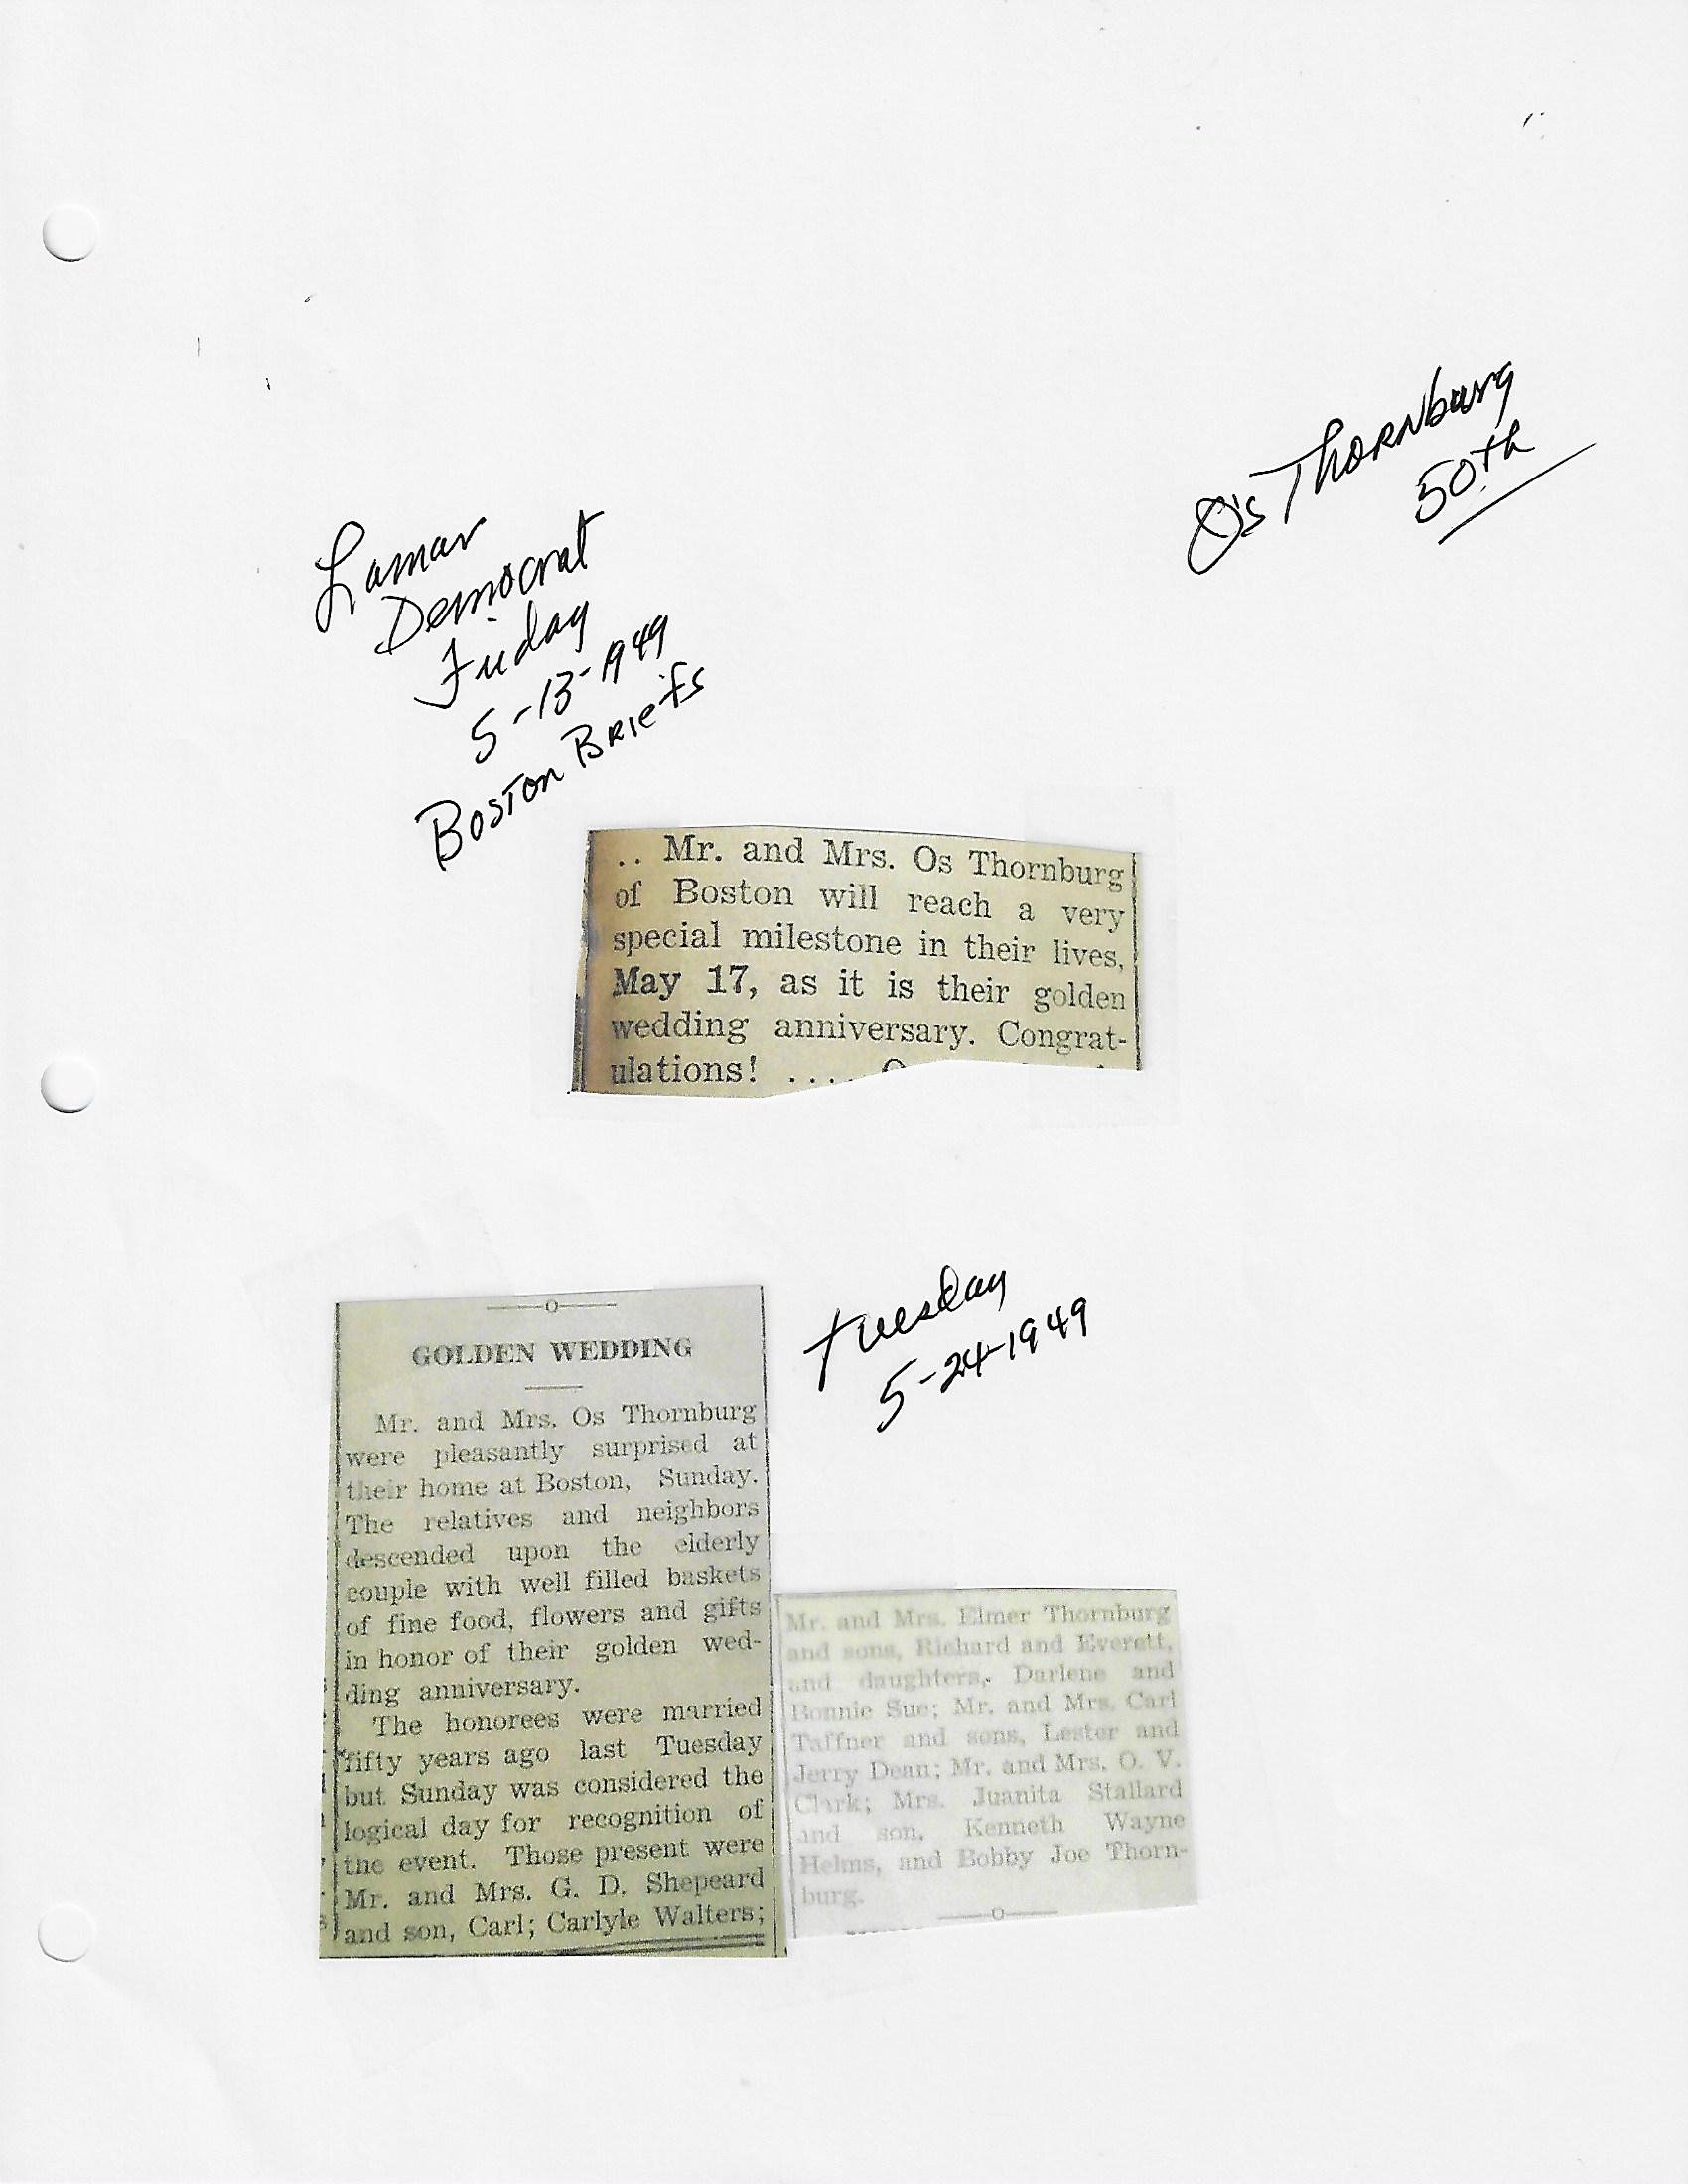 Os Thornburg
50th
Lamar
Democrat
Friday
5-13-1949
Boston Briefs
.. Mr. and Mrs. Os Thornburg
of Boston will reach a very
special milestone in their lives,
May 17, as it is their golden
wedding anniversary. Congrat-
ulations! ....
Tuesday
5-24-1949
GOLDEN WEDDING
Mr. and Mrs. Os Thornburg
were pleasantly surprised at
their home at Boston, Sunday.
The relatives and neighbors
descended upon the elderly
couple with well filled baskets
of fine food, flowers and gifts
in honor of their golden wed-
ding anniversary.
The honorees were married
fifty years ago last Tuesday
but Sunday was considered the
logical day for recognition of
the event. Those present were
Mr. and Mrs. G. D. Shepeard
and son, Carl; Carlyle Walters;
Mr. and Mrs. Elmer Thornburg
and sons, Richard and Everett,
and daughters, Darlene and
Bonnie Sue; Mr. and Mrs. Carl
Taffner and sons, Lester and
Jerry Dean; Mr. and Mrs. O. V.
Clark; Mrs. Juanita Stallard
and son, Kenneth Wayne
Helms, and Bobby Joe Thorn-
burg.